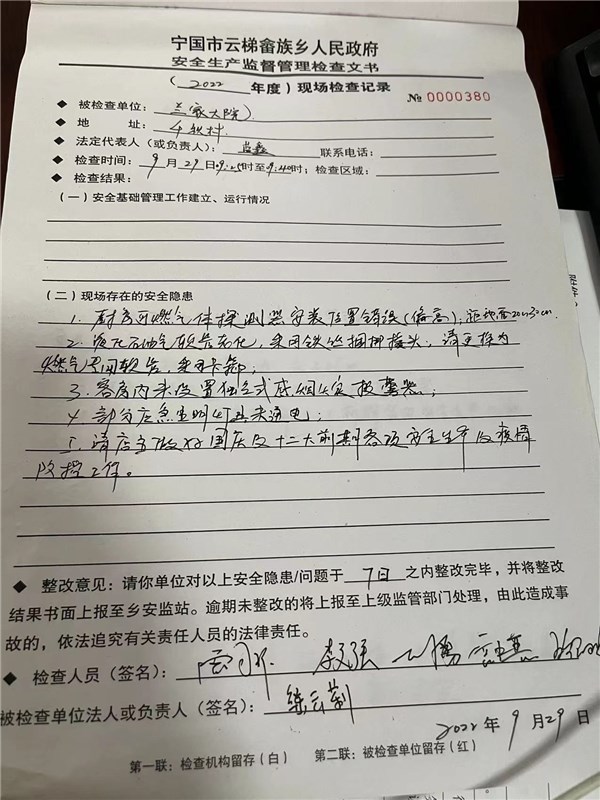 宁国市云梯畲族乡人民政府
安全生产监督管理检查文书
（2022年度）现场检查记录
№ 0000380
◆ 被检查单位：兰家大院
◆ 地　　址：千秋村
◆ 法定代表人（或负责人）：　联系电话：
◆ 检查时间：9月29日9:25时至9:40时；检查区域：
◆ 检查结果：
（一）安全基础管理工作建立、运行情况
（二）现场存在的安全隐患
1. 厨房可燃气体探测器安装位置错误（偏高），距地面20cm30cm
2. 液化石油气软管老化，采用铁丝捆绑接头，请更换为
燃气专用软管，采用卡箍；
3. 客房内未设置独立式感烟火灾报警器；
4. 部分应急照明灯具未通电；
5. 请店主做好国庆及二十大前期各项安全生产及疫情
防控工作。
◆ 整改意见：请你单位对以上安全隐患/问题于7日之内整改完毕，并将整改
结果书面上报至乡安监站。逾期未整改的将上报至上级监管部门处理，由此造成事
故的，依法追究有关责任人员的法律责任。
◆ 检查人员（签名）：
被检查单位法人或负责人（签名）：
2022年9月29日
第一联：检查机构留存（白）　第二联：被检查单位留存（红）